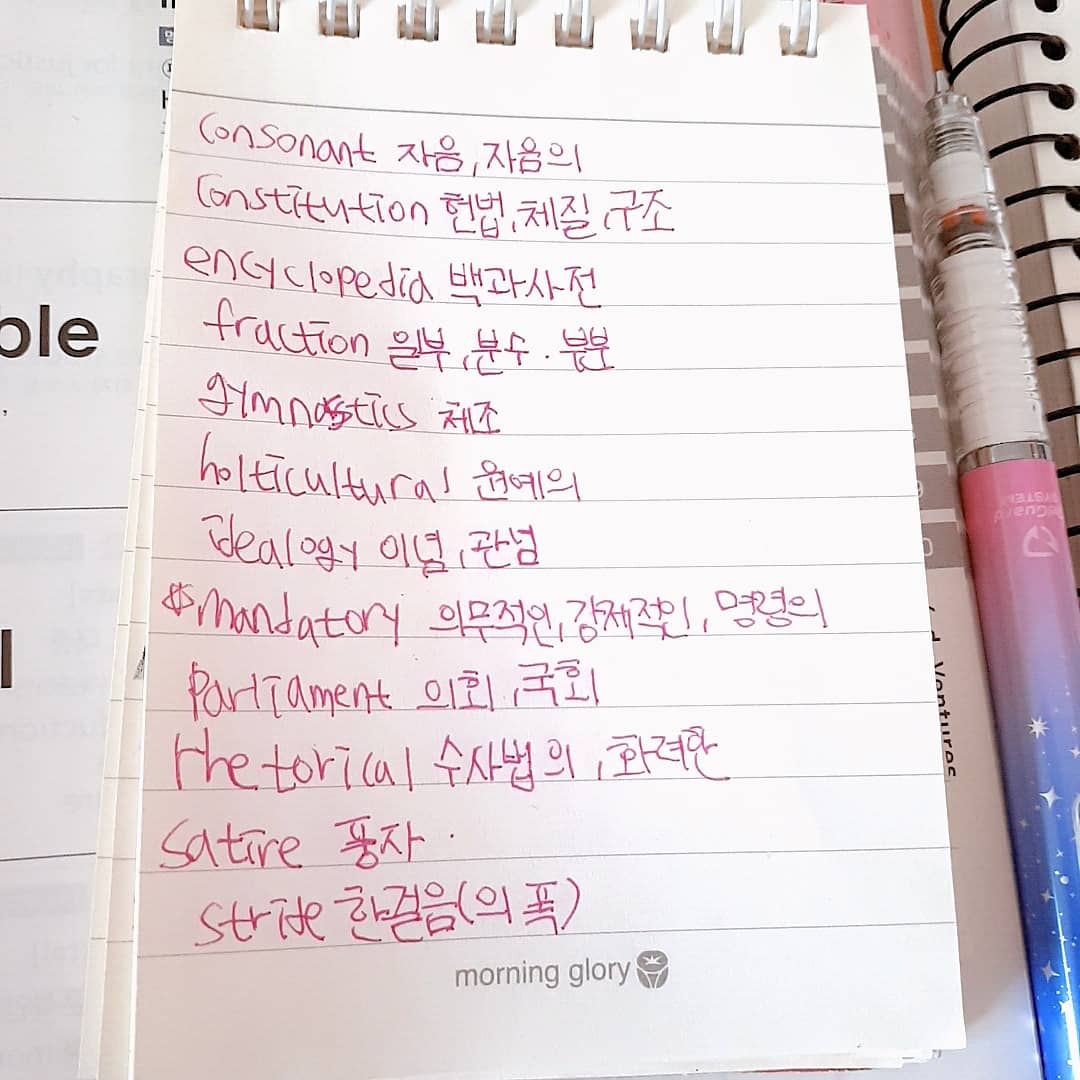 consonant 자음, 자음의
constitution 헌법, 체질, 구조
encyclopedia 백과사전
fraction 일부, 분수. 부분
gymnastics 체조
holticultural 원예의
idealogy 이념, 관념
mandatory 의무적인, 강제적인, 명령의
parliament 의회, 국회
rhetorical 수사법의, 화려한
satire 풍자
stride 한걸음(의 폭)
morning glory
ble
l
Ventures